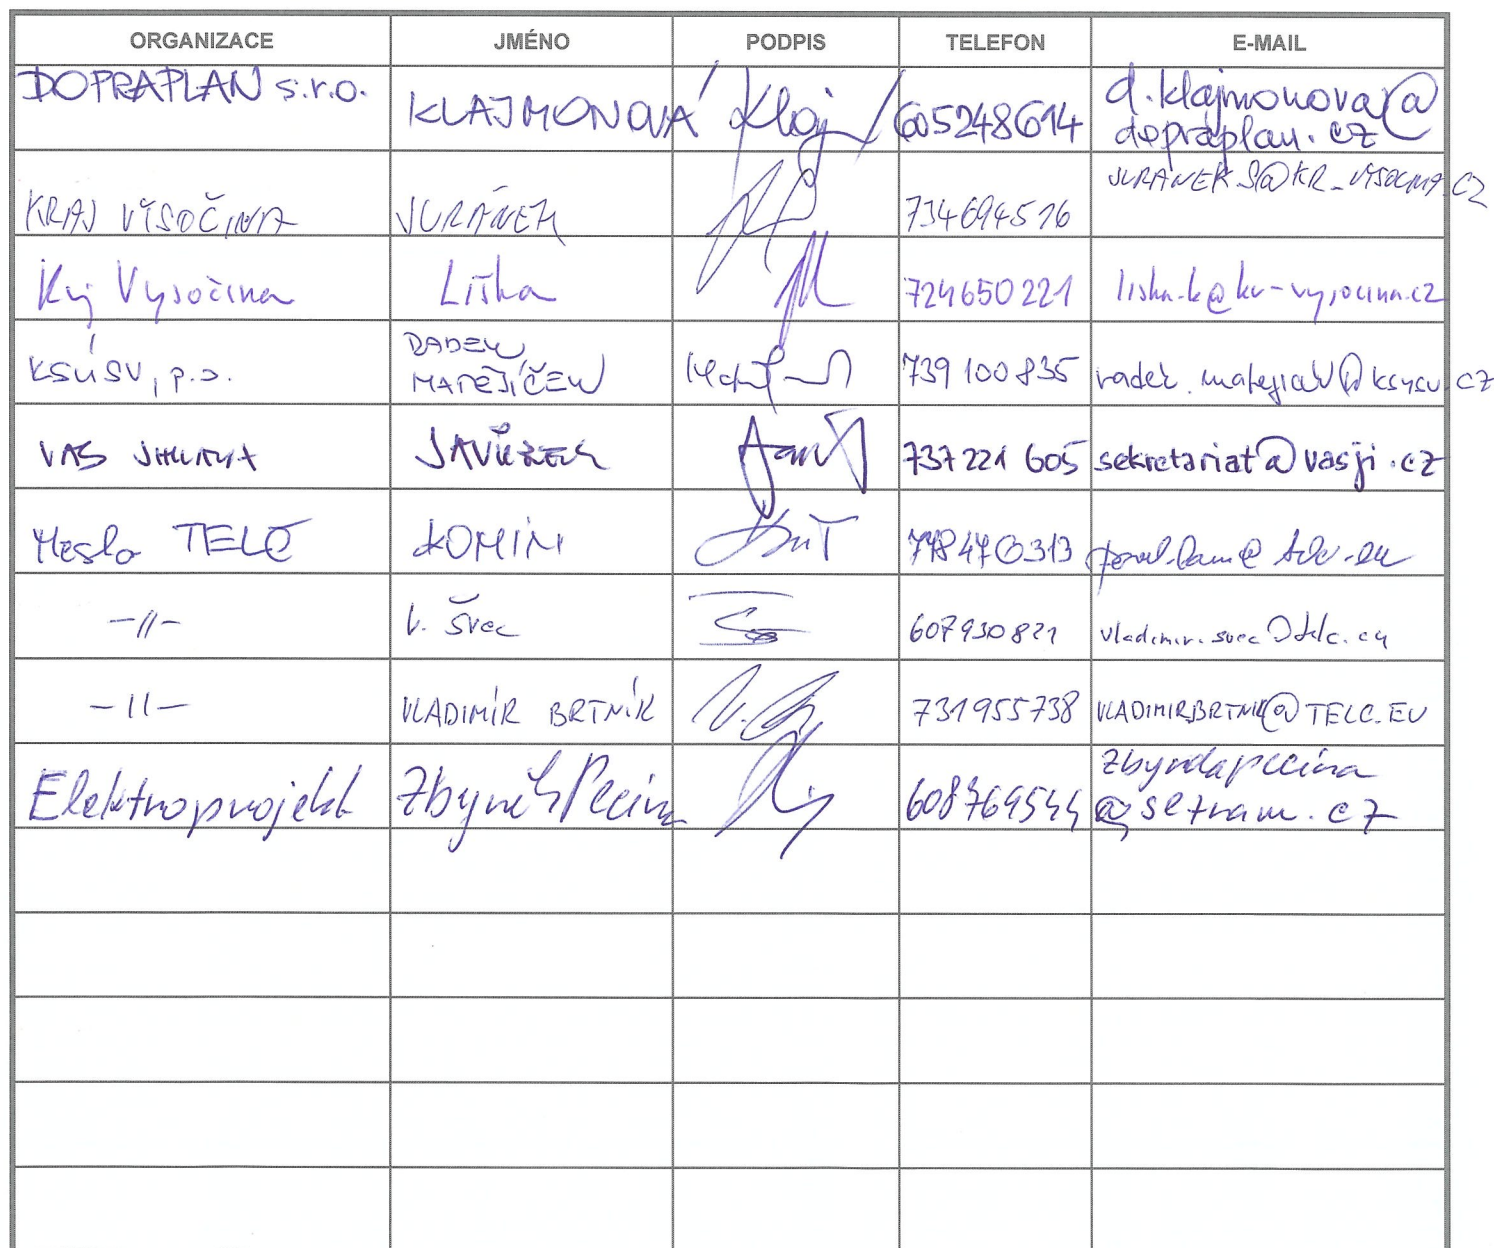 ORGANIZACE JMÉNO PODPIS TELEFON E-MAIL
DOPRAPLAN s.r.o. KLAJMONOVÁ 605248614 d.klajmonova@
dopraplan.cz
KRAJ VYSOČINA JURÁNEK 734694516 JURANEK.S@KR-VYSOCINA.CZ
Kraj Vysočina Liška 724650221 liska.k@kr-vysocina.cz
KSÚSV, p.o. RADEK 739 100 835
MATĚJÍČEK
VAS JIHLAVA 737 221 605 sekretariat@vasji.cz
Město TELČ KOMÍN
-//- V. Švec 607930821 vladimir.svec@telc.eu
-11- VLADIMÍR BRTNÍK 731955738 VLADIMIR.BRTNIK@TELC.EU
Elektroprojekt Zbyněk Pecina 608769544 zbyndapecina
@seznam.cz